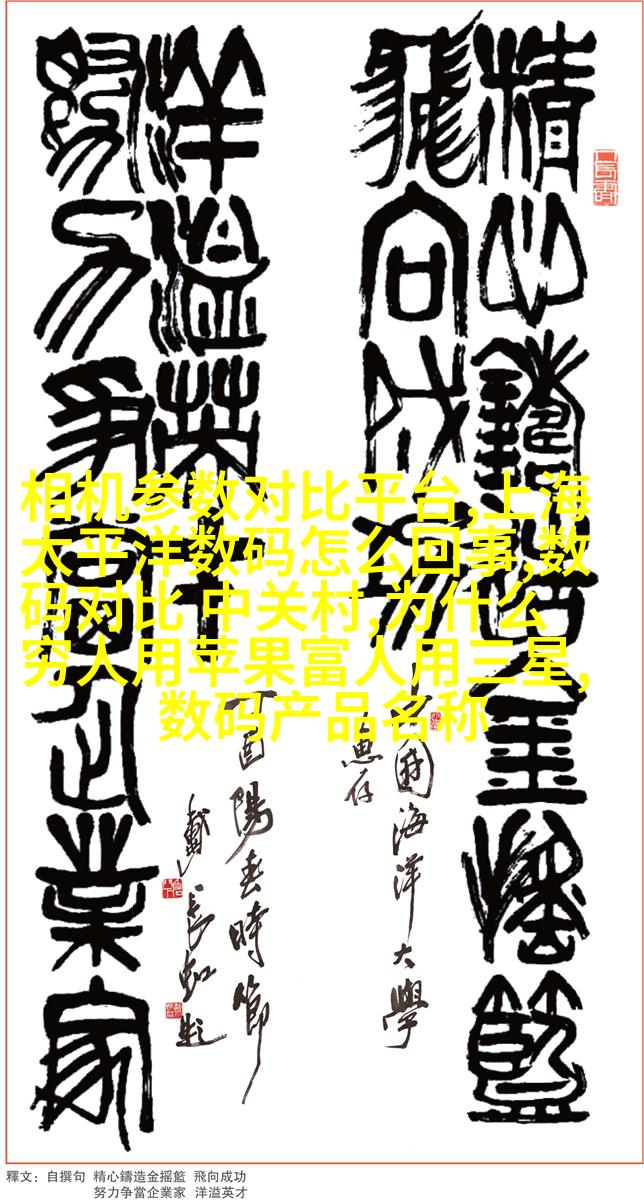 精心鑄造金摇籃
飛向成功
中國海洋大學
惠存
努力争當企業家
洋溢英才
丁酉陽春時節
戴長虹題
相机参数对比平台,上海
太平洋数码怎么回事,数
码对比 中关村,为什么
穷人用苹果富人用三星,
数码产品名称
釋文：自撰句 精心鑄造金摇籃 飛向成功
努力争當企業家 洋溢英才